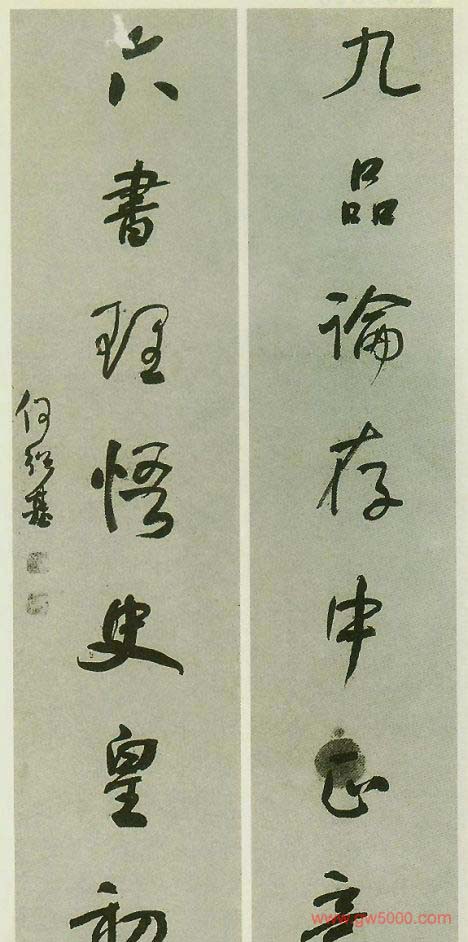 九品論存中正
六書理悟史皇初
何紹基
www.gw5000.com